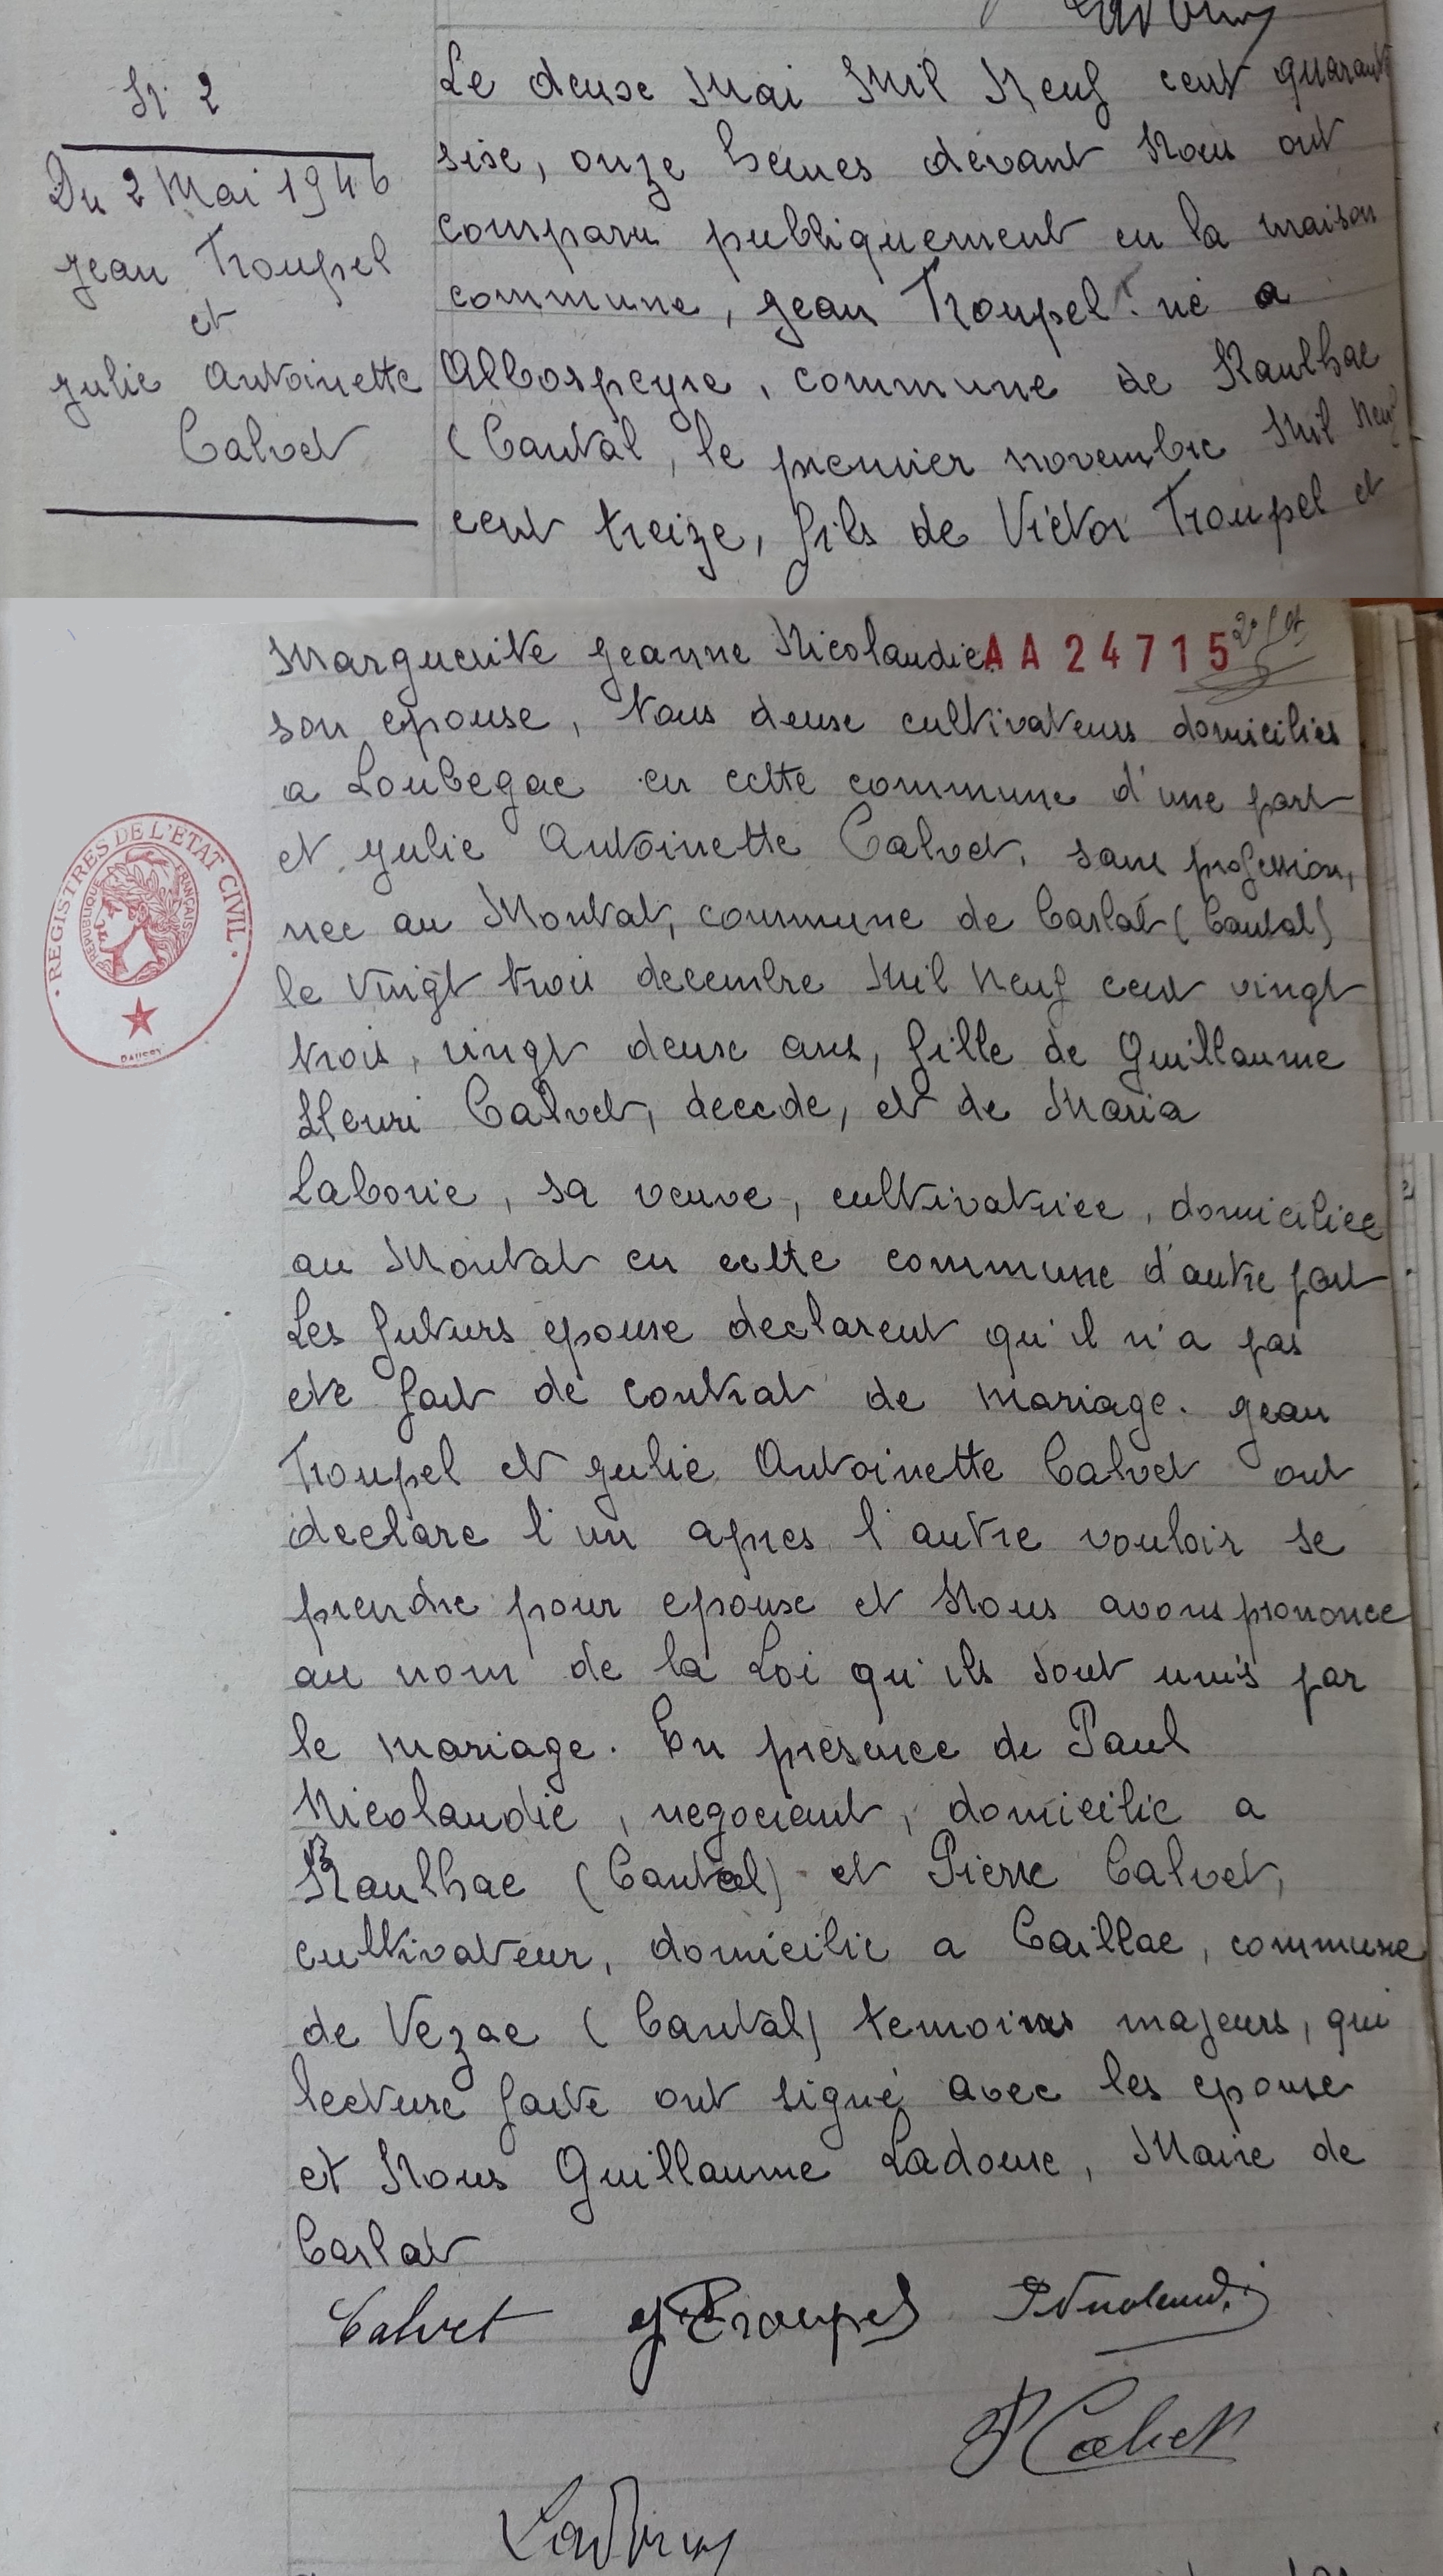 N. 2
Du 2 Mai 1946
Jean Troupel
et
Julie Antoinette
Calvet
Le deuxe Mai Mil Neuf cent quarante
sixe, onze heures devant Nous ont
comparu publiquement en la maison
commune, Jean Troupel né a
Albospeyre, commune de Raulhac
(Cantal, le premier novembre Mil Neuf
cent treize, fils de Victor Troupel et
Marguerite Jeanne Nicolaudie AA 24715
son epouse, tous deuxe cultivateurs domicilies
a Loubegac en cette commune d'une part
et Julie Antoinette Calvet, sans profession,
nee au Montat, commune de Carlat (Cantal)
le vingt trois decembre Mil Neuf cent vingt
trois, vingt deuxe ans, fille de Guillaume
Henri Calvet, decede, et de Maria
Laborie, sa veuve, cultivatrice, domiciliee
au Montat en cette commune d'autre part
Les futurs epouxe declarent qu'il n'a pas
ete fait de contrat de mariage. Jean
Troupel et Julie Antoinette Calvet ont
declare l'un apres l'autre vouloir se
prendre pour epouxe et Nous avons prononce
au nom de la Loi qu'ils sont unis par
le mariage. En presence de Paul
Nicolaudie, negociant, domicilie a
Raulhac (Cantal) et Pierre Calvet,
cultivateur, domicilie a Caillac, commune
de Vezac (Cantal) temoins majeurs, qui
lecture faite ont signé avec les epouxe
et Nous Guillaume Ladouxe, Maire de
Carlat
Calvet J Troupel P Nicolaudie
P Calvet
REGISTRES DE L'ETAT CIVIL
REPUBLIQUE FRANÇAISE